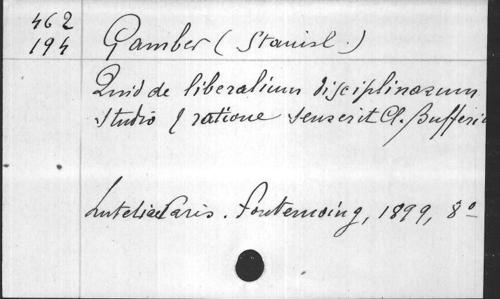 462
194
Gamber (Stanisl.)
Quid de liberalium disciplinarum
studio & ratione senserit Cl. Bufferi
Lutetiae Paris. Fontemoing, 1899, 8º